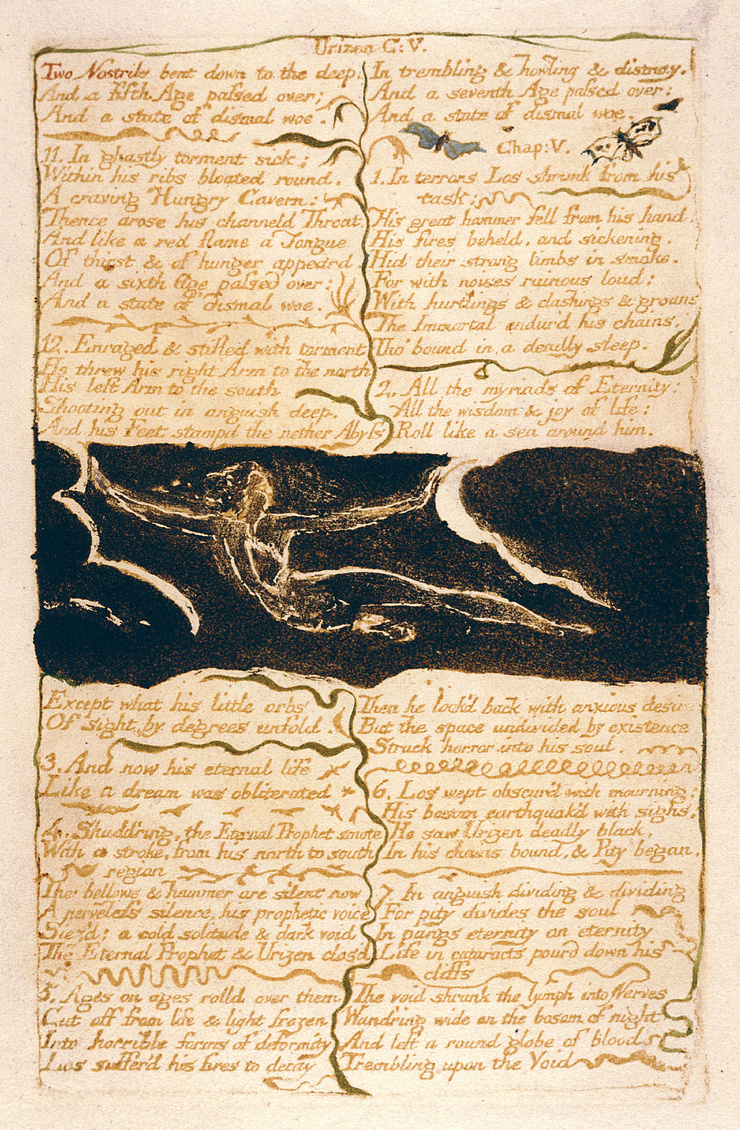 Urizen C: V.
Two Nostrils bent down to the deep.
And a fifth Age passed over;
And a state of dismal woe.
11. In ghastly torment sick;
Within his ribs bloated round,
A craving Hungry Cavern:
Thence arose his channeld Throat,
And like a red flame a Tongue
Of thirst & of hunger appeard
And a sixth Age passed over:
And a state of dismal woe.
12. Enraged & stifled with torment
He threw his right Arm to the north
His left Arm to the south
Shooting out in anguish deep.
And his Feet stampd the nether Abyss
In trembling & howling & dismay.
And a seventh Age passed over:
And a state of dismal woe.
Chap: V.
1. In terrors Los shrunk from his
task:
His great hammer fell from his hand:
His fires beheld, and sickening,
Hid their strong limbs in smoke.
For with noises ruinous loud;
With hurtlings & clashings & groans
The Immortal endur'd his chains,
Tho' bound in a deadly sleep.
2. All the myriads of Eternity:
All the wisdom & joy of life:
Roll like a sea around him,
Except what his little orbs
Of sight by degrees unfold.
3. And now his eternal life
Like a dream was obliterated
4. Shudd'ring, the Eternal Prophet smote
With a stroke, from his north to south
region
The bellows & hammer are silent now
A nerveless silence, his prophetic voice
Siez'd; a cold solitude & dark void
The Eternal Prophet & Urizen clos'd
5. Ages on ages rolld over them
Cut off from life & light frozen
Into horrible forms of deformity
Los suffer'd his fires to decay
Then he look'd back with anxious desire
But the space undivided by existence
Struck horror into his soul.
6. Los wept obscur'd with mourning:
His bosom earthquak'd with sighs;
He saw Urizen deadly black,
In his chains bound, & Pity began,
7. In anguish dividing & dividing
For pity divides the soul
In pangs eternity on eternity
Life in cataracts pourd down his
cliffs
The void shrunk the lymph into Nerves
Wandring wide on the bosom of night
And left a round globe of blood
Trembling upon the Void